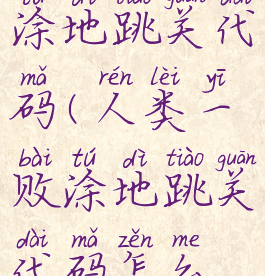 涂地跳关代
mǎ rén lèi yī
码(人类一
bài tú dì tiào guān
败涂地跳关
dài mǎ zěn me
代码怎么